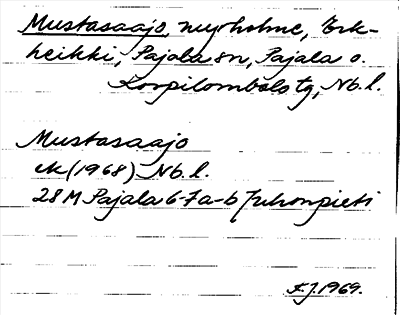 Mustasaajo, myrholme, Erk-
heikki, Pajala sn, Pajala o.
Korpilombolo tg, Nb. l.
Mustasaajo
ek (1968) Nb. l.
28 M Pajala 6-7 a-b Juhonpieti
A.J. 1969.